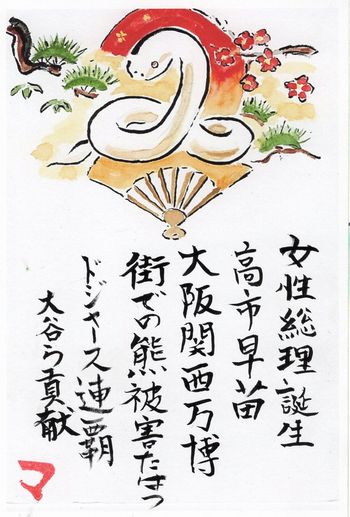 女性総理誕生
高市早苗
大阪関西万博
街での熊被害たはつ
ドジャース連覇
大谷ら貢献
マ